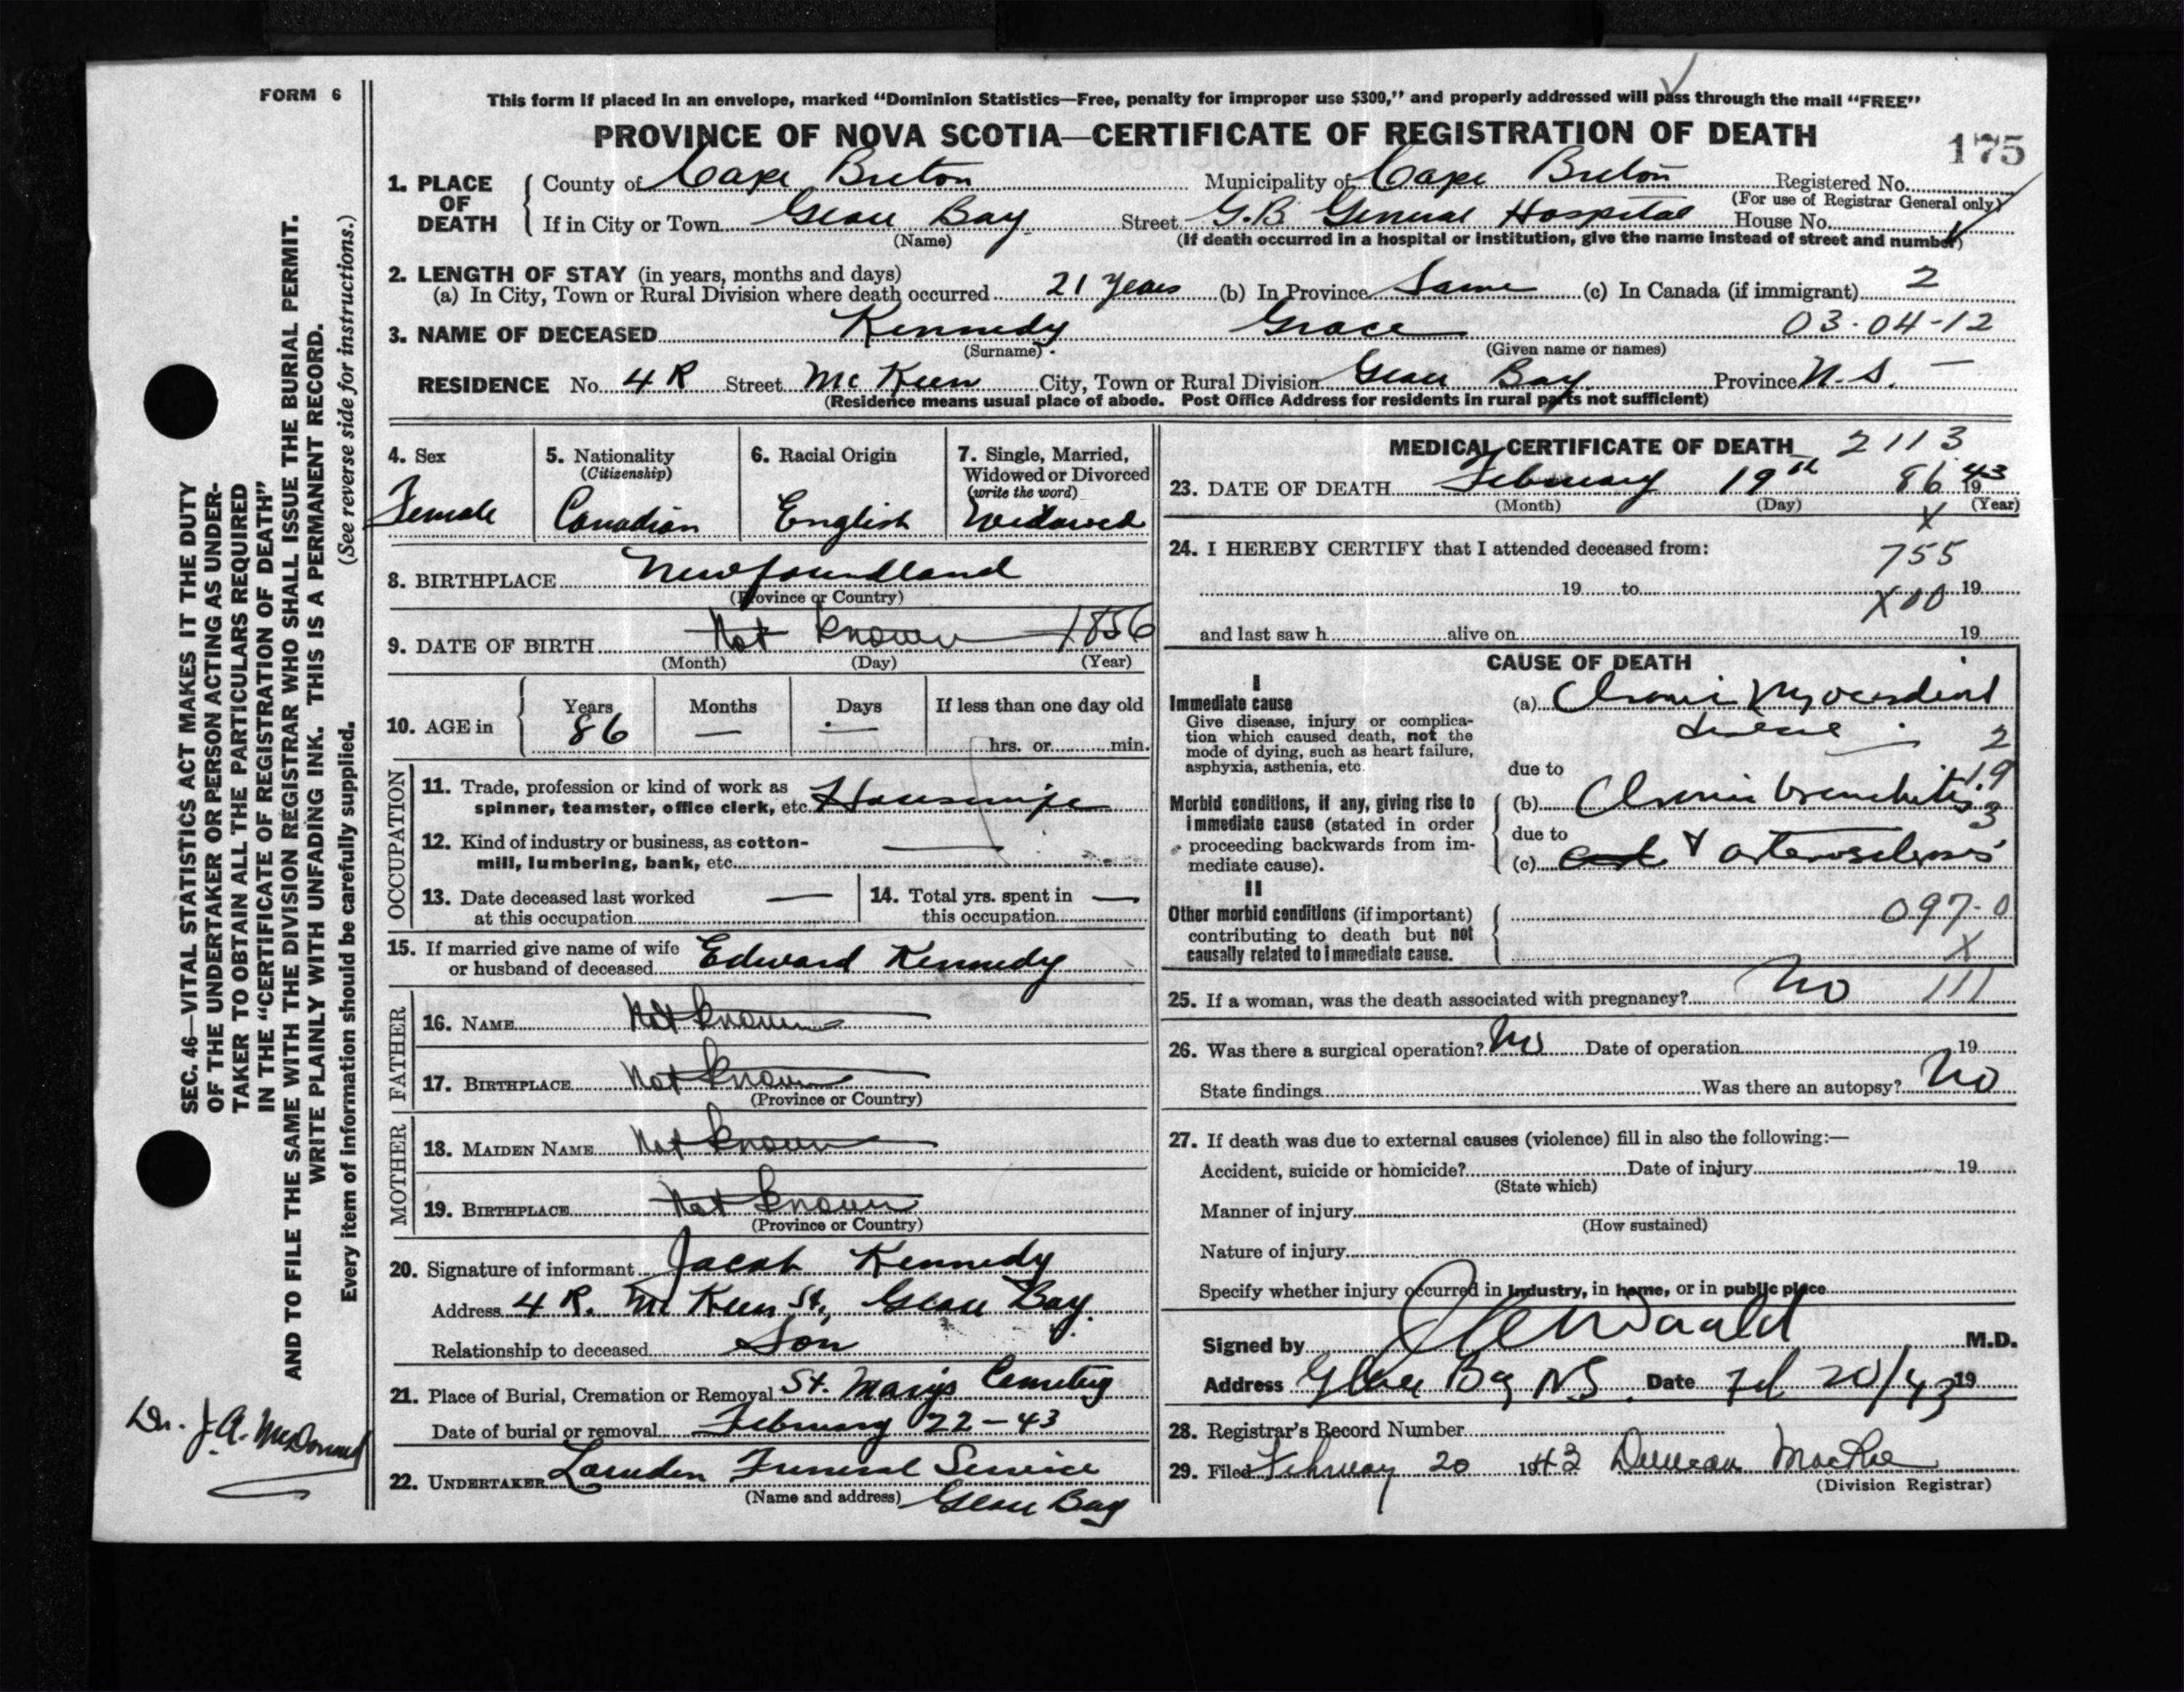 FORM 6
This form if placed in an envelope, marked "Dominion Statistics—Free, penalty for improper use $300," and properly addressed will pass through the mail "FREE"
PROVINCE OF NOVA SCOTIA—CERTIFICATE OF REGISTRATION OF DEATH
175
1. PLACE OF DEATH
County of Cape Breton Municipality of Cape Breton Registered No.
(For use of Registrar General only)
If in City or Town Glace Bay Street G.B General Hospital House No.
(Name) (If death occurred in a hospital or institution, give the name instead of street and number)
2. LENGTH OF STAY (in years, months and days)
(a) In City, Town or Rural Division where death occurred 21 years (b) In Province Same (c) In Canada (if immigrant) 2
3. NAME OF DECEASED Kennedy Grace 03-04-12
(Surname) (Given name or names)
RESIDENCE No. 4 R Street Mc Keen City, Town or Rural Division Glace Bay Province N.S. —
(Residence means usual place of abode. Post Office Address for residents in rural parts not sufficient)
4. Sex
Female
5. Nationality
(Citizenship)
Canadian
6. Racial Origin
English
7. Single, Married,
Widowed or Divorced
(write the word)
Widowed
8. BIRTHPLACE Newfoundland
(Province or Country)
9. DATE OF BIRTH Not known 1856
(Month) (Day) (Year)
10. AGE in
Years Months Days If less than one day old
86 — — hrs. or min.
OCCUPATION
11. Trade, profession or kind of work as
spinner, teamster, office clerk, etc. Housewife
12. Kind of industry or business, as cotton-
mill, lumbering, bank, etc. —
13. Date deceased last worked —
at this occupation
14. Total yrs. spent in —
this occupation
15. If married give name of wife
or husband of deceased Edward Kennedy
FATHER
16. NAME Not known
17. BIRTHPLACE Not known
(Province or Country)
MOTHER
18. MAIDEN NAME Not known
19. BIRTHPLACE Not known
(Province or Country)
20. Signature of informant Jacob Kennedy
Address 4 R. Mc Keen St., Glace Bay.
Relationship to deceased Son
21. Place of Burial, Cremation or Removal St. Marys Cemetery
Date of burial or removal February 22-43
22. UNDERTAKER Funeral Service
(Name and address) Glace Bay
MEDICAL CERTIFICATE OF DEATH 2113
23. DATE OF DEATH February 19th 86 1943
(Month) (Day) (Year)
X
24. I HEREBY CERTIFY that I attended deceased from:
755
19 to 19
X00
and last saw h alive on 19
CAUSE OF DEATH
I
Immediate cause
Give disease, injury or complica-
tion which caused death, not the
mode of dying, such as heart failure,
asphyxia, asthenia, etc.
(a) Chronic Myocardial
disease 2
due to
19
Morbid conditions, if any, giving rise to
immediate cause (stated in order
proceeding backwards from im-
mediate cause).
(b) Chronic bronchitis
3
due to
(c) & arteriosclerosis
II
Other morbid conditions (if important)
contributing to death but not
causally related to immediate cause.
097-0
X
25. If a woman, was the death associated with pregnancy? No 111
26. Was there a surgical operation? No Date of operation 19
State findings Was there an autopsy? No
27. If death was due to external causes (violence) fill in also the following:—
Accident, suicide or homicide? Date of injury 19
(State which)
Manner of injury
(How sustained)
Nature of injury
Specify whether injury occurred in industry, in home, or in public place
Signed by M.D.
Address Glace Bay NS. Date Feb 20/43 19
28. Registrar's Record Number
29. Filed February 20 1943 Duncan MacRae
(Division Registrar)
SEC. 46—VITAL STATISTICS ACT MAKES IT THE DUTY
OF THE UNDERTAKER OR PERSON ACTING AS UNDER-
TAKER TO OBTAIN ALL THE PARTICULARS REQUIRED
IN THE "CERTIFICATE OF REGISTRATION OF DEATH"
AND TO FILE THE SAME WITH THE DIVISION REGISTRAR WHO SHALL ISSUE THE BURIAL PERMIT.
WRITE PLAINLY WITH UNFADING INK. THIS IS A PERMANENT RECORD.
Every item of information should be carefully supplied. (See reverse side for instructions.)
Dr. J.A. McDonald